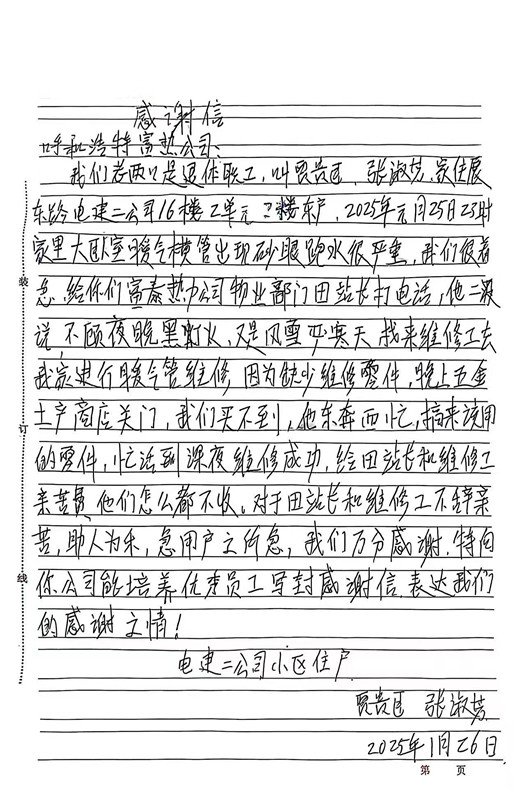 感谢信
呼和浩特富热公司:
我们老两口是退休职工,叫贾贵臣、张淑芳,家住展
东路电建二公司16楼2单元2楼东户,2025年元月25日23时
家里大卧室暖气横管出现砂眼跑水很严重,我们很着
急,给你们富泰热力公司物业部门田站长打电话,他二话没
说,不顾夜晚黑灯火,又是风雪严寒天,找来维修工去
我家进行暖气管维修,因为缺少维修零件,晚上五金
土产商店关门,我们买不到,他东奔西忙,搞来该用
的零件,忙活到深夜维修成功,给田站长和维修工
亲苦费,他们怎么都不收。对于田站长和维修工不辞亲
苦,助人为乐,急用户之所急,我们万分感谢,特向
你公司能培养优秀员工写封感谢信,表达我们
的感谢之情!
电建二公司小区住户
贾贵臣 张淑芳
2025年1月26日
装
订
线
第 页